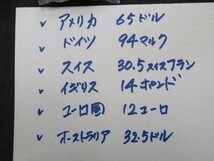 アメリカ 65ドル
ドイツ 94マルク
スイス 30.5スイスフラン
イギリス 14ポンド
ユーロ圏 12ユーロ
オーストラリア 32.5ドル